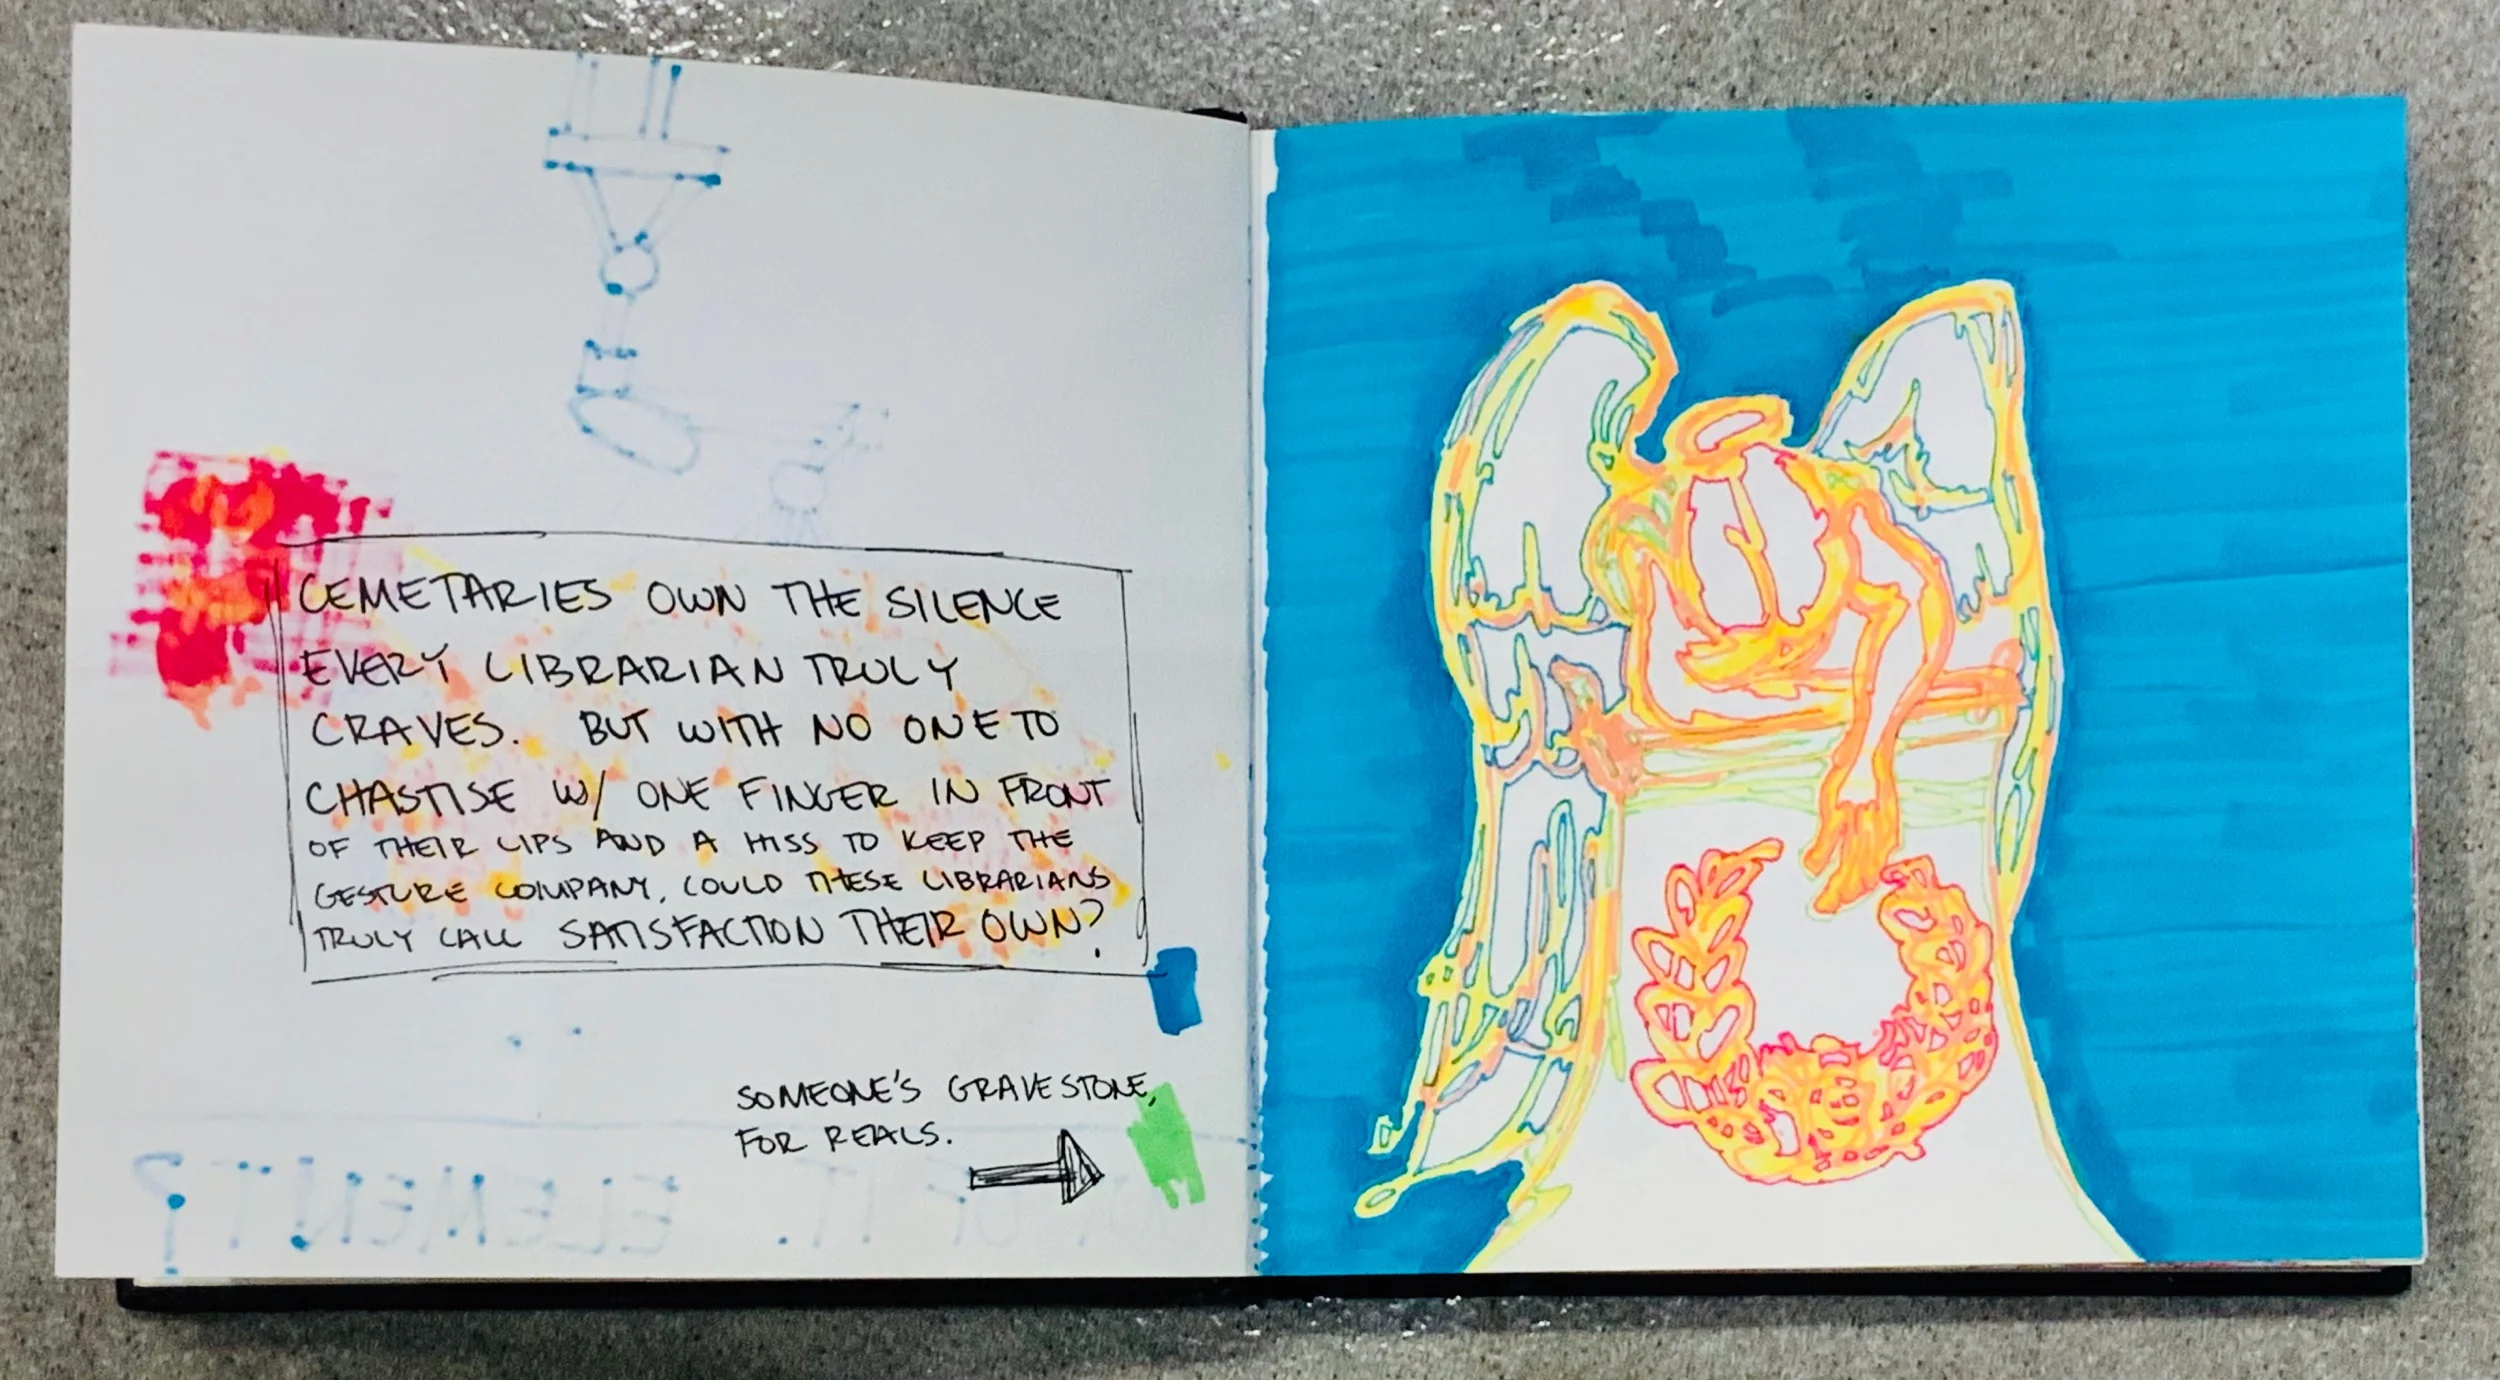 CEMETARIES OWN THE SILENCE
EVERY LIBRARIAN TRULY
CRAVES. BUT WITH NO ONE TO
CHASTISE W/ ONE FINGER IN FRONT
OF THEIR LIPS AND A HISS TO KEEP THE
GESTURE COMPANY, COULD THESE LIBRARIANS
TRULY CALL SATISFACTION THEIR OWN?
SOMEONE'S GRAVESTONE,
FOR REALS.
OF IT. ELEMENT?